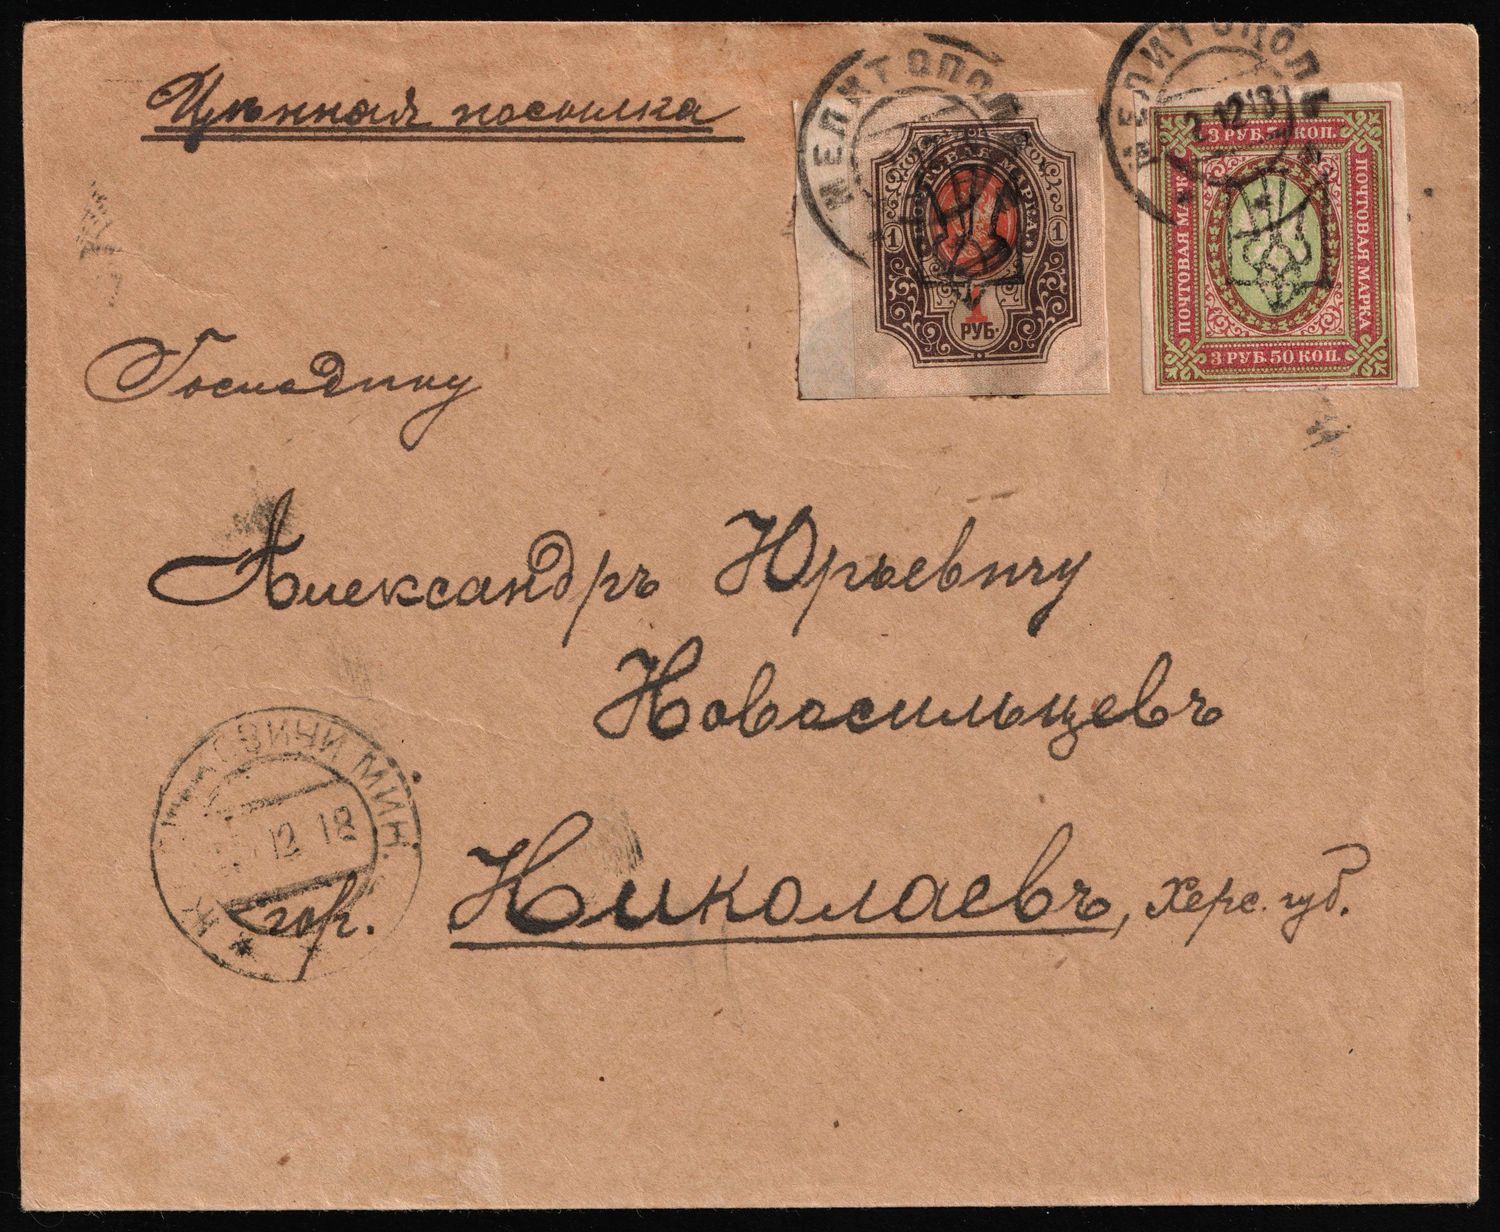 Цѣнная посылка
МЕЛИТОПОЛ
МЕЛИТОПОЛ
2 12 18
1 МАРКА 1
1
РУБ.
3 РУБ. 50 КОП.
ПОЧТОВАЯ МАРКА
ПОЧТОВАЯ МАРКА
3 РУБ. 50 КОП.
Господину
Александръ Юрьевичу
Новосильцевъ
МИН.
12 18
гор. Николаевъ, Херс. губ.